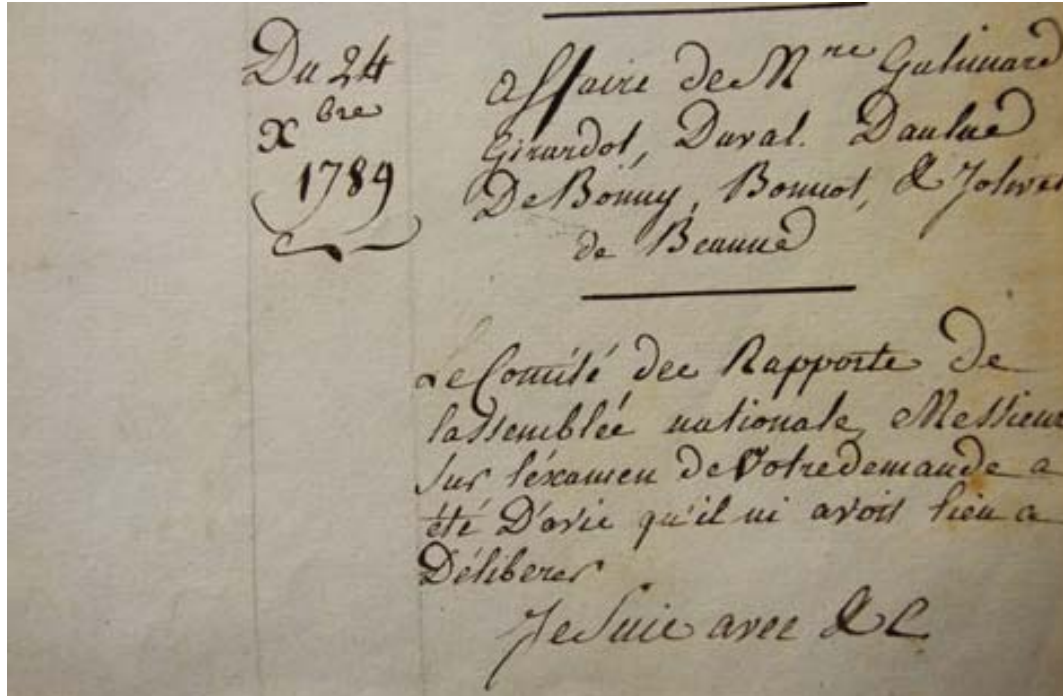 Du 24
Xbre
1789
affaire de Mrs Galimard
Girardot, Duval. Daulne
De Bonny, Bonnot, & Jolivet
de Beaune
Le Comité des Rapports De
lassemblée nationale, Messieurs
sur léxamen de Votre demande a
été D'avis qu'il ni avoit lieu a
Déliberer
Je Suis avec &c